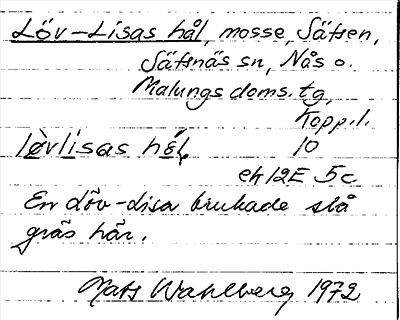 Löv-Lisas hål, mosse, Sätsen,
Säfsnäs sn, Nås o.
Malungs doms. tg,
Kopp. l.
lövlisas hål, 10
ek 12E 5c
En Löv-Lisa brukade slå
gräs här.
Mats Wahlberg 1972